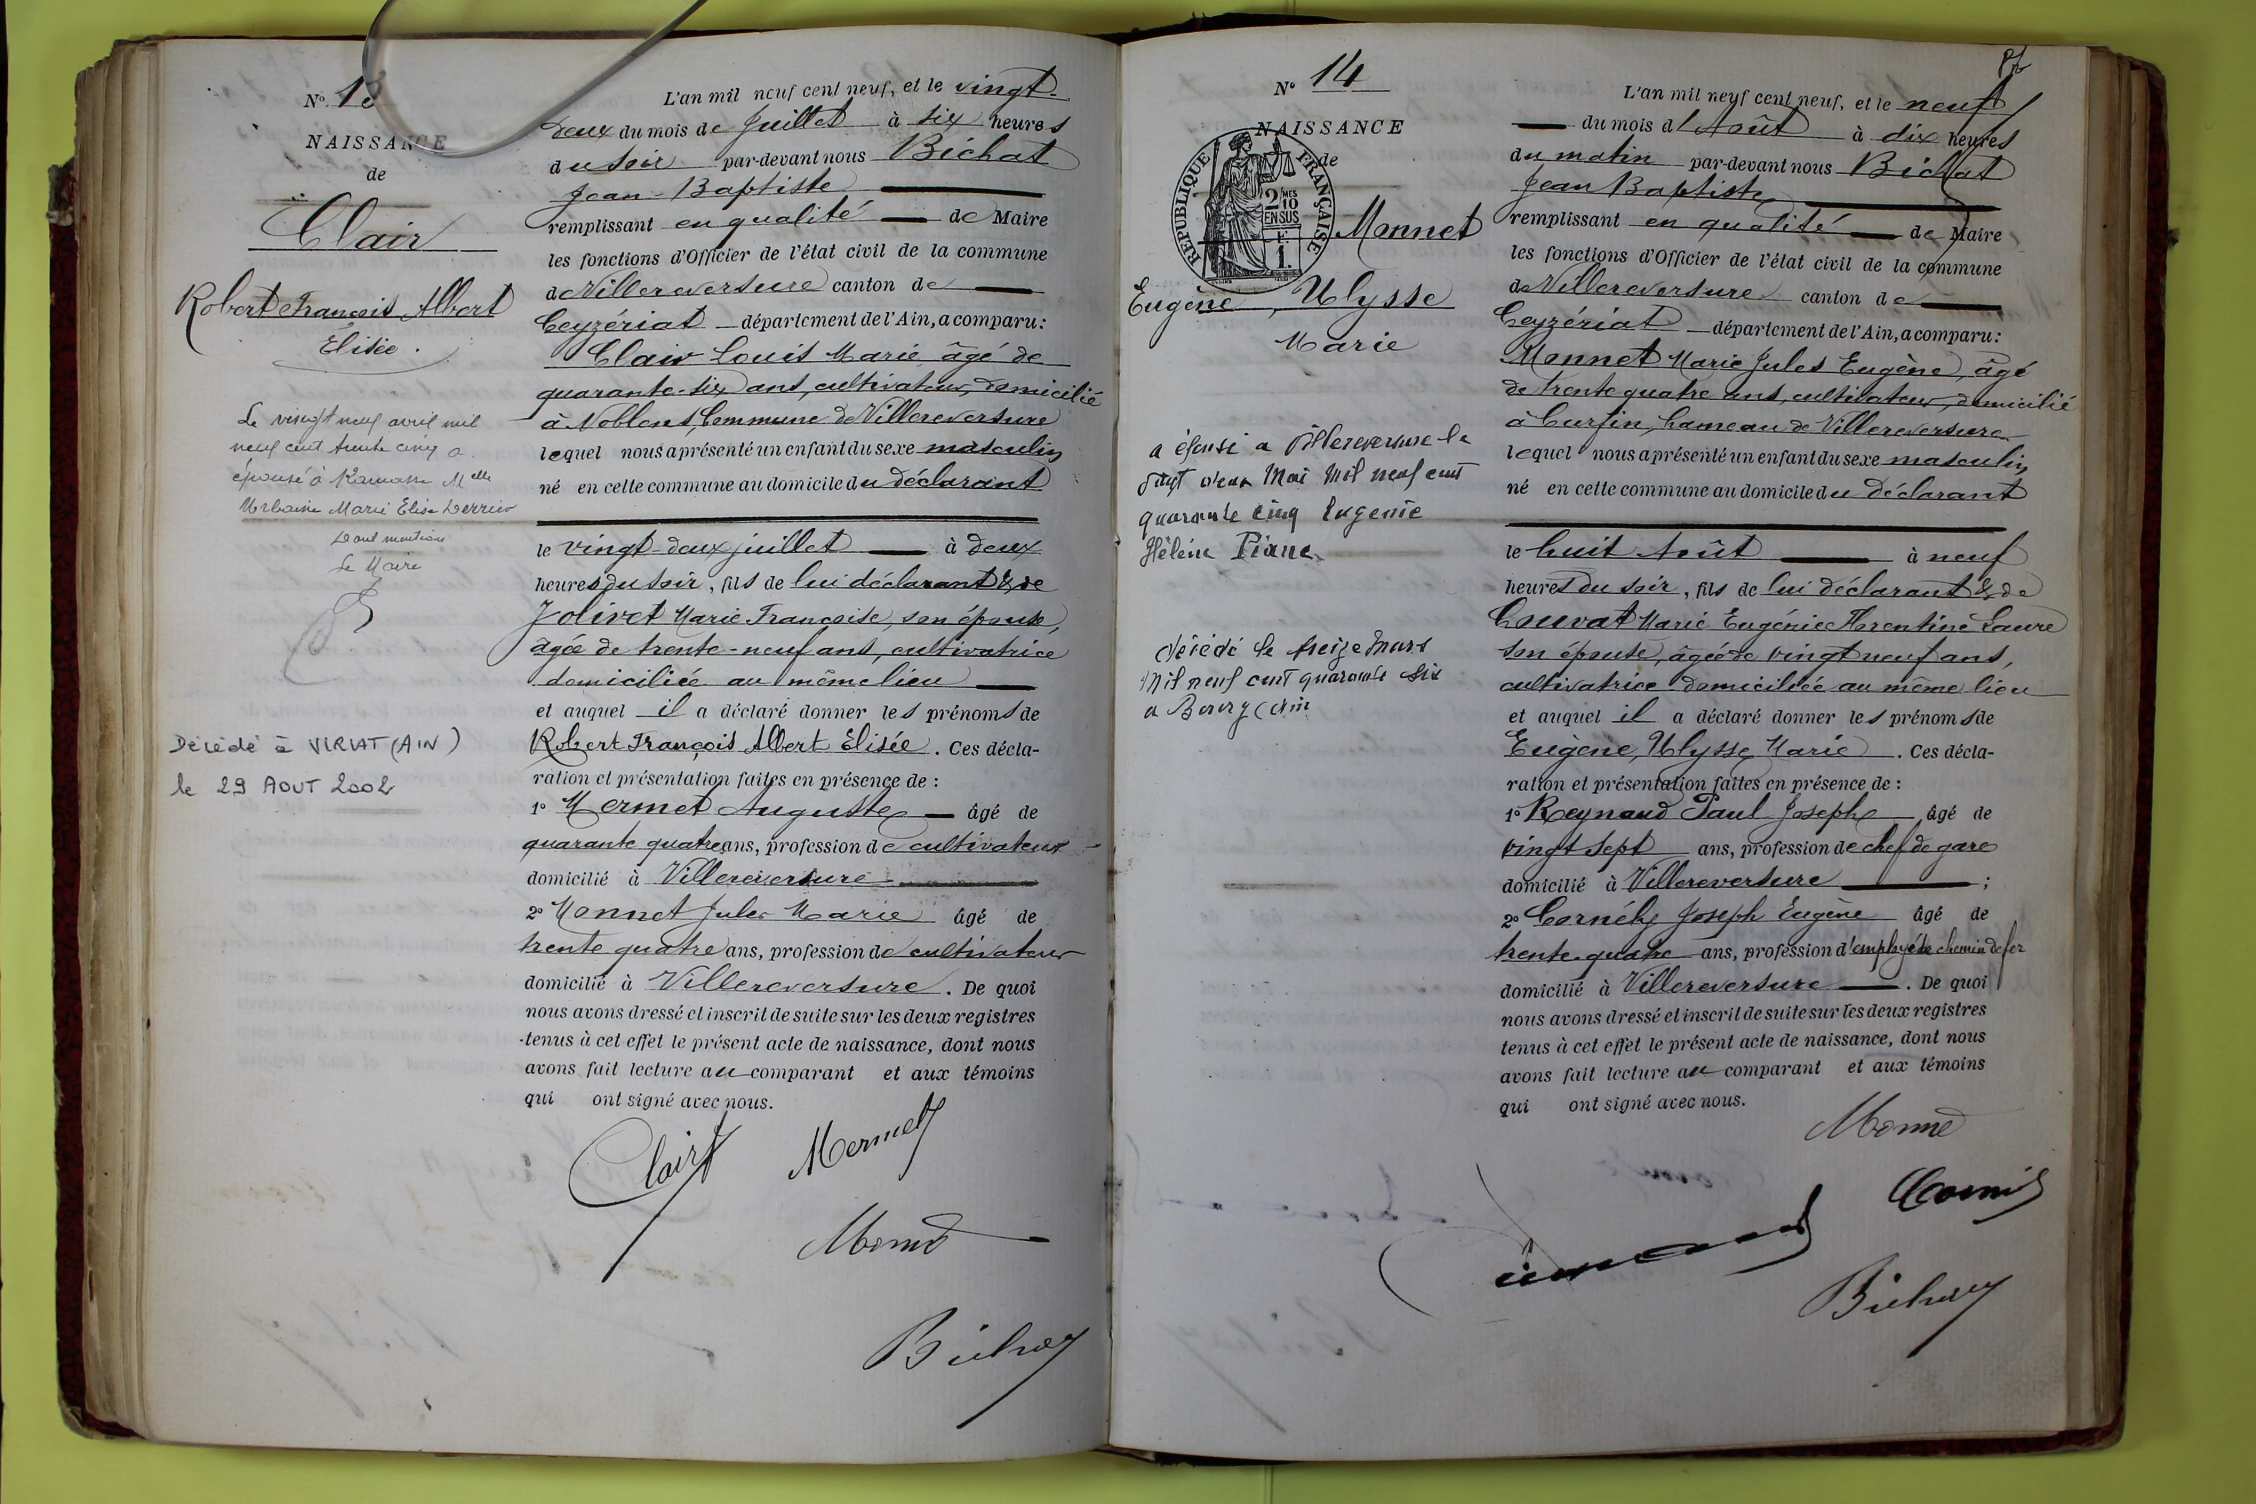 N° 13
NAISSANCE
de
Clair
Robert François Albert
Elisée.
Le vingt neuf avril mil
neuf cent trente cinq a
épousé à Ramasse Melle
Marie Elise
Dont mention
Le Maire
Décédé à VIRIAT (AIN)
le 29 AOUT 2002
L'an mil neuf cent neuf, et le vingt-
deux du mois de Juillet à six heures
du soir par-devant nous Bichat
Jean-Baptiste
remplissant en qualité de Maire
les fonctions d'Officier de l'état civil de la commune
de Villereversure canton de
Ceyzériat département de l'Ain, a comparu:
Clair Louis Marie âgé de
quarante-six ans, cultivateur, domicilié
à Noblens, Commune de Villereversure
lequel nous a présenté un enfant du sexe masculin
né en cette commune au domicile du déclarant
le vingt-deux juillet à deux
heures du soir, fils de lui déclarant & de
Jolivet Marie Françoise, son épouse,
âgée de trente-neuf ans, cultivatrice
domiciliée au même lieu
et auquel il a déclaré donner les prénoms de
Robert François Albert Elisée. Ces décla-
ration et présentation faites en présence de :
1° Mermet Auguste âgé de
quarante quatre ans, profession de cultivateur
domicilié à Villereversure
2° Monnet Jules Marie âgé de
trente quatre ans, profession de cultivateur
domicilié à Villereversure. De quoi
nous avons dressé et inscrit de suite sur les deux registres
tenus à cet effet le présent acte de naissance, dont nous
avons fait lecture au comparant et aux témoins
qui ont signé avec nous.
Clair Mermet
Monnet
Bichat
N° 14
NAISSANCE
de
REPUBLIQUE FRANÇAISE
2 MES
10
EN SUS
1
F.
Monnet
Eugène, Ulysse
Marie
a épousé a Villereversure le
Vingt deux Mai Mil neuf cent
quarante cinq Eugenie
Hélène Piana
décédé le treize Mars
Mil neuf cent quarante six
a Bourg (Ain
L'an mil neuf cent neuf, et le neuf
du mois d'Août à dix heures
du matin par-devant nous Bichat
Jean Baptiste
remplissant en qualité de Maire
les fonctions d'Officier de l'état civil de la commune
de Villereversure canton de
Ceyzériat département de l'Ain, a comparu:
Monnet Marie Jules Eugène, âgé
de trente quatre ans, cultivateur, domicilié
à Curfin, hameau de Villereversure
lequel nous a présenté un enfant du sexe masculin
né en cette commune au domicile du déclarant
le huit Août à neuf
heures du soir, fils de lui déclarant & de
Couvat Marie Eugénie Florentine Laure
son épouse, âgée de vingt neuf ans,
cultivatrice domiciliée au même lieu
et auquel il a déclaré donner les prénoms de
Eugène, Ulysse, Marie. Ces décla-
ration et présentation faites en présence de :
1° Reynaud Paul Joseph âgé de
vingt sept ans, profession de chef de gare
domicilié à Villereversure ;
2° Cornély Joseph Eugène âgé de
trente-quatre ans, profession d'employé de chemin de fer
domicilié à Villereversure. De quoi
nous avons dressé et inscrit de suite sur les deux registres
tenus à cet effet le présent acte de naissance, dont nous
avons fait lecture au comparant et aux témoins
qui ont signé avec nous.
Monnet
Bichat